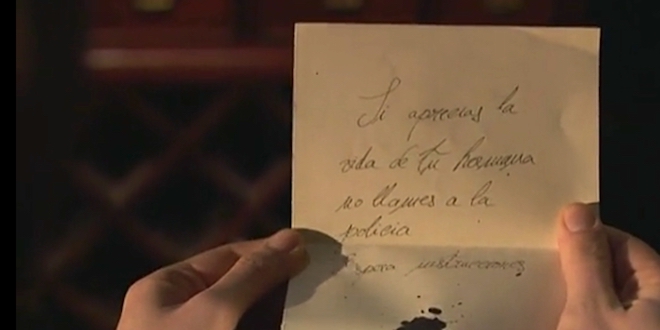 Si aprecias la
vida de tu hermana
no llames a la
policia
para instrucciones